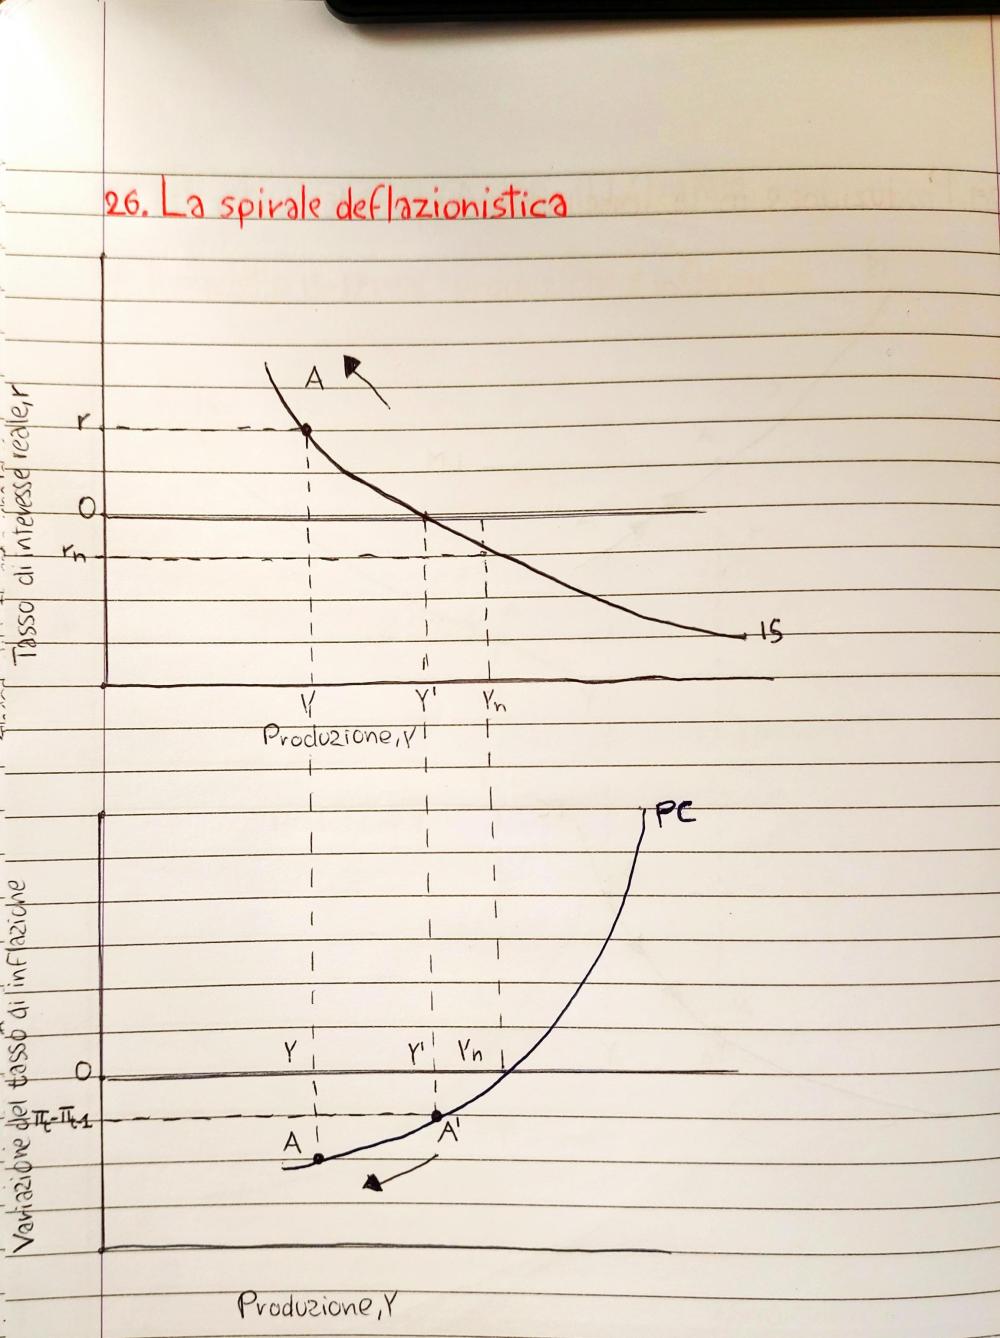 26. La spirale deflazionistica
Tasso di interesse reale, r
A
r
0
rn
IS
Y Y' Yn
Produzione, Y
Variazione del tasso di inflazione
PC
Y Y' Yn
0
πt-πt-1
A A'
Produzione, Y